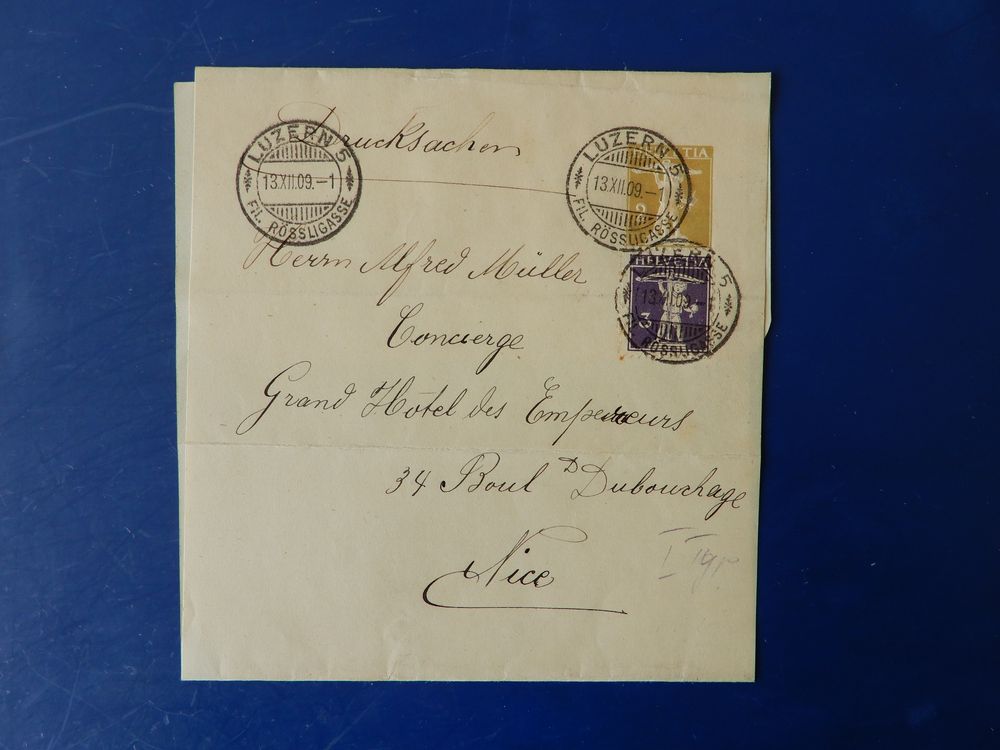 Drucksachen
LUZERN 5
13.XII.09.–1
FIL. RÖSSLIGASSE
LUZERN 5
13.XII.09.–1
FIL. RÖSSLIGASSE
TIA
2
HELVETIA
3
LUZERN 5
13.XII.09.–
FIL. RÖSSLIGASSE
Herrn Alfred Müller
Concierge
Grand Hôtel des Empereurs
34 Boul D Dubouchage
Nice
I Typ